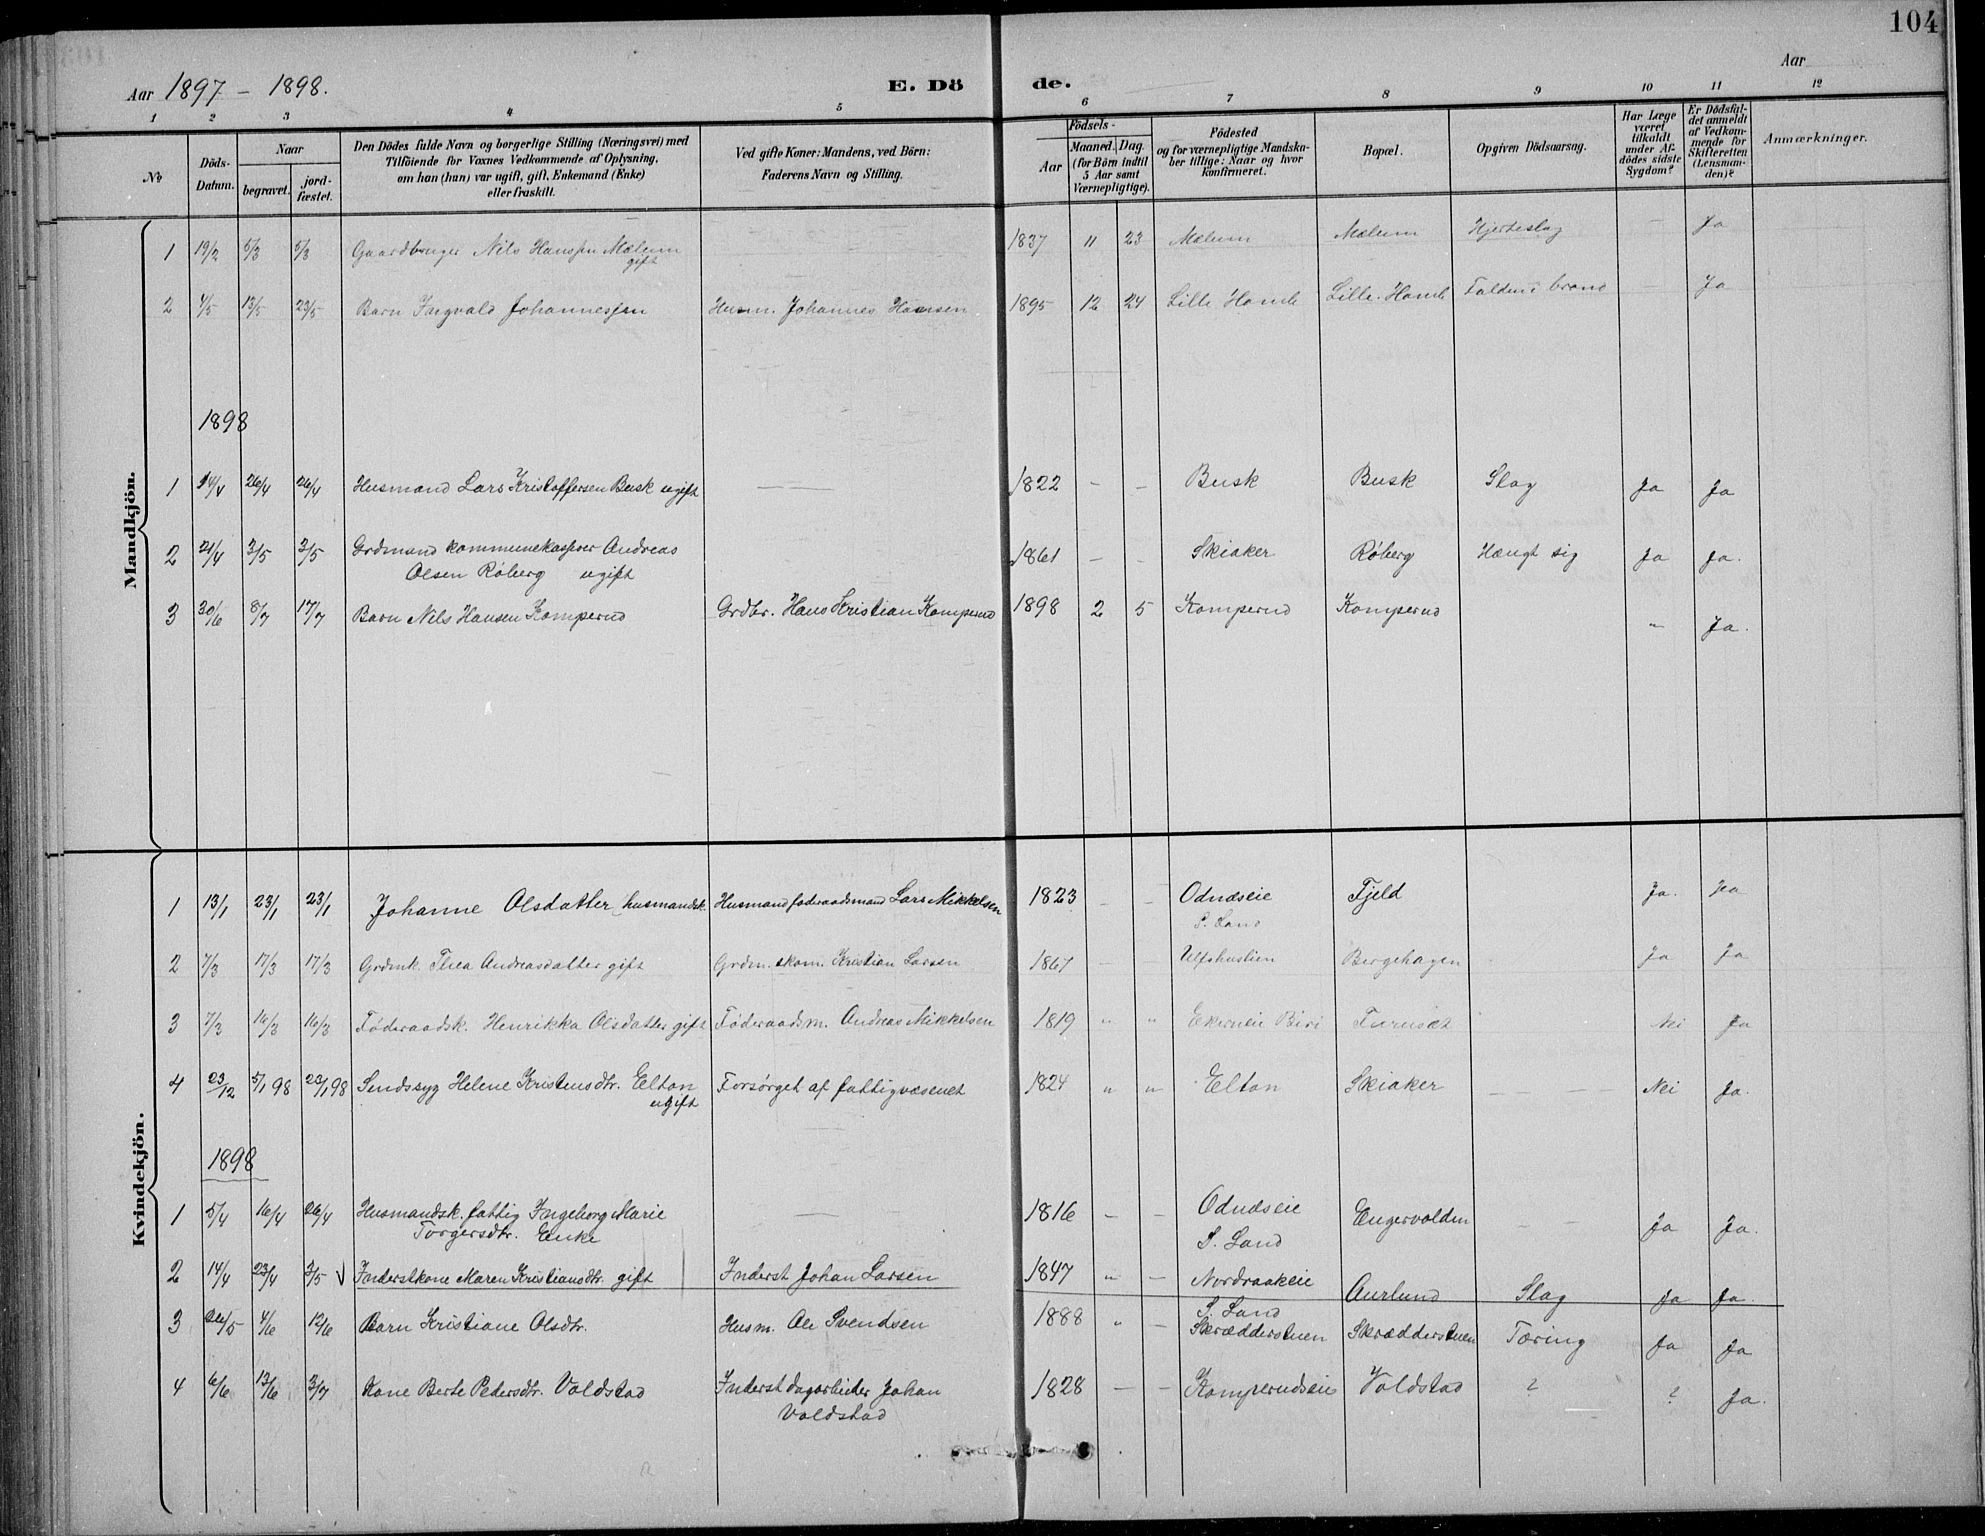 104
Aar 1897 - 1898. E. Dö de. Aar
1 2 3 4 5 6 7 8 9 10 11 12
No
Döds-Datum.
Naar
begravet. jord-fæstet.
Den Dödes fulde Navn og borgerlige Stilling (Næringsvei) med
Tilföiende for Voxnes Vedkommende af Oplysning,
om han (hun) var ugift, gift, Enkemand (Enke)
eller fraskilt.
Ved gifte Koner: Mandens, ved Börn:
Faderens Navn og Stilling.
Födsels-
Aar
Maaned. Dag.
(for Börn indtil
5 Aar samt
Værnepligtige).
Födested
og for værnepligtige Mandska-
ber tillige: Naar og hvor
konfirmeret.
Bopæl.
Opgiven Dödsaarsag.
Har Læge
været
tilkaldt
under Af-
dödes sidste
Sygdom?
Er Dödsfal-
det anmeldt
af Vedkom-
mende for
Skifteretten
(Lensman-
den)?
Anmærkninger.
Mandkjön.
1 19/2 5/3 5/3 Gaardbruger Nils Hanssen Mælum 1837 11 23 Mælum Mælum Hjerteslag — Ja
gift
2 4/5 13/5 23/5 Barn Ingvald Johannessen Husm. Johannes Hansen 1895 12 24 Lille Homle Lille Homle Falden i brønd — Ja
1898
1 14/4 26/4 26/4 Husmand Lars Kristoffersen Busk ugift — 1822 - - Busk Busk Slag Ja Ja
2 21/4 3/5 3/5 Grdmand kommunekasserer Andreas 1861 - - Skiaker Røberg Hængt sig Ja Ja.
Olsen Røberg ugift
3 30/6 8/7 17/7 Barn Nils Hansen Komperud Grdbr. Hans Kristian Komperud 1898 2 5 Komperud Komperud " Ja.
Kvindekjön.
1 13/1 23/1 23/1 Johanne Olsdatter husmandsk. Husmand føderaadsmand Lars Mikkelsen 1823 - - Odnæseie Fjeld Ja. Ja
S. Land
2 7/3 17/3 17/3 Grdmk. Thea Andreasdatter gift Grdm. skom. Kristian Larsen 1867 - Ulfshuslien Bergehagen Ja Ja
3 7/3 16/3 16/3 Føderaadsk. Henrikka Olsdatter gift Føderaadsm. Andreas Mikkelsen 1819 " " Ekerneie Biri Furuset Nei Ja
4 23/12 5/1 98 23/1 98 Sindssyg Helene Kristensdtr. Elton Forsørget af fattigvæsenet 1824 " " Elton Skiaker - - - Nei Ja.
ugift
1898
1 5/4 16/4 26/4 Husmandsk. fattig Ingeborg Marie — 1816 - - Odnæseie Engervolden - - Ja Ja.
Torgersdtr. Enke S. Land
2 14/4 23/4 3/5 V Inderstkone Maren Kristiansdtr. gift Inderst Johan Larsen 1847 " - Nordraakeie Aurlund Slag Ja Ja.
S. Land
3 26/5 4/6 12/6 Barn Kristiane Olsdtr. Husm. Ole Svendsen 1888 " - Skrædderstuen Skrædderstuen Tæring Ja Ja
4 6/6 13/6 3/7 Kone Berte Pedersdtr. Voldstad Inderst dagarbeider Johan 1828 - - Komperudseie Voldstad ? ? Ja.
Voldstad